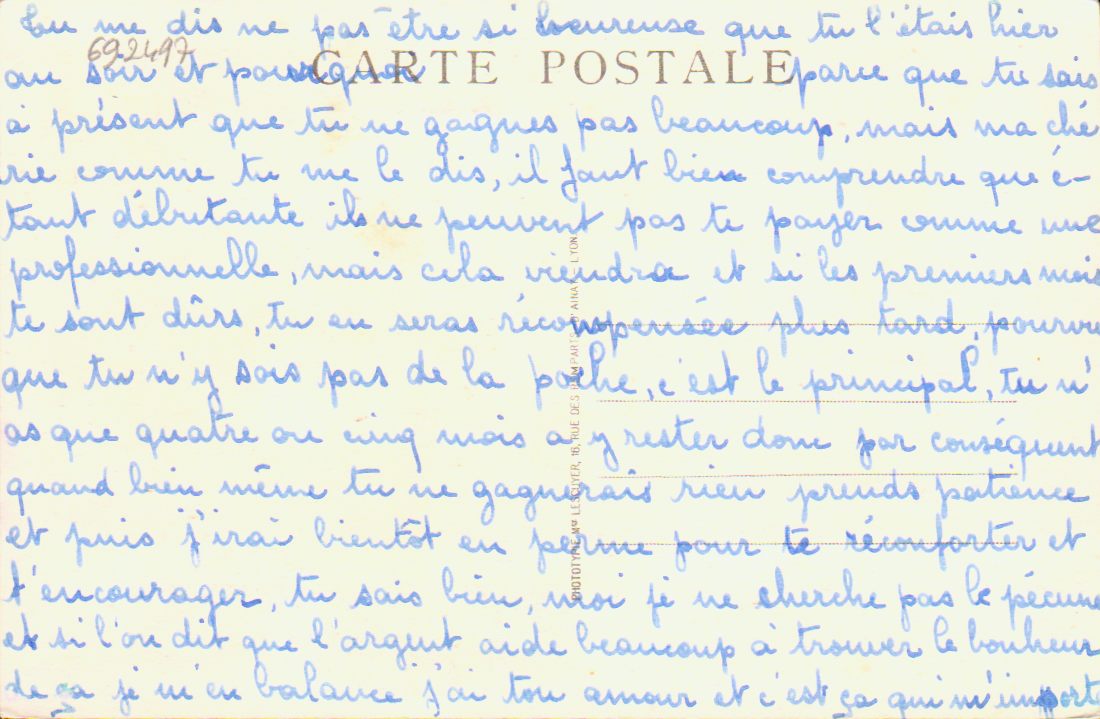 Tu me dis ne pas être si heureuse que tu l'étais hier
692497
au soir et pourquoi parce que tu sais
CARTE POSTALE
à présent que tu ne gagnes pas beaucoup, mais ma ché
rie comme tu me le dis, il faut bien comprendre que é-
tant débutante ils ne peuvent pas te payer comme une
professionnelle, mais cela viendra et si les premiers mois
te sont dûrs, tu en seras récompensée plus tard, pourvu
que tu n'y sois pas de la poche, c'est le principal, tu n'
as que quatre ou cinq mois a y rester donc par conséquent
quand bien même tu ne gagnerais rien prends patience
et puis j'irai bientôt en perme pour te réconforter et
t'encourager, tu sais bien, moi je ne cherche pas le pécune
et si l'on dit que l'argent aide beaucoup à trouver le bonheur
de ça je m'en balance j'ai ton amour et c'est ça qui m'importe
PHOTOTYPIE Mce LESCUYER, 16, RUE DES REMPARTS D'AINAY - LYON